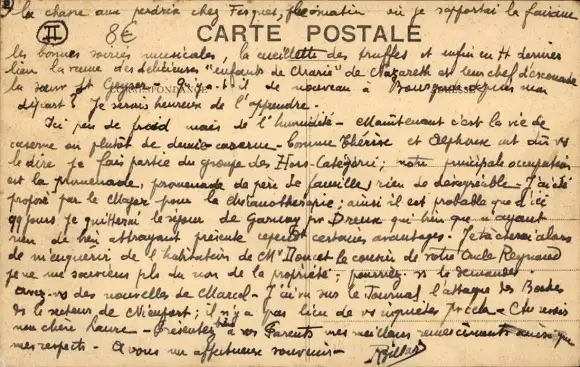 la chasse aux perdrix chez Fesquet, plombatin où je rapportai la faisane
II
8€
CARTE POSTALE
les bonnes soirées musicales, la cueillette des truffes et enfin en H dernier
lieu la reine des délicieuses "enfants de Marie" de Nazareth et leur chef d'escouade
la sœur St Gayan - Qu'y a-t-il de nouveau à Bourg depuis mon
CORRESPONDANCE
ADRESSE
départ? Je serais heureux de l'apprendre.
Ici peu de froid mais de l'humidité - Maintenant c'est la vie de
caserne ou plutôt de demie-caserne - Comme Thérèse et Alphonse ont dû vs
le dire je fais partie du groupe des Hors-Catégorie; notre principale occupation
est la promenade, promenade de père de famille, rien de désagréable - J'ai été
proposé par le Major pour la ; ainsi il est probable que d'ici
qq jours je quitterai le séjour de Garnay pr Dreux qui bien que n'ayant
rien de bien attrayant présente certains avantages. Je tâcherai alors
de m'enquérir de l'habitation de Mr Doucet le cousin de votre Oncle Reynaud
je ne me souviens pls du nom de la propriété; pourriez-vs le demander.
avez-vs des nouvelles de Marcel - J'ai vu sur le Journal l'attaque des Boches
ds le secteur de Nieuport; il n'y a pas lieu de vs inquiéter pr cela -
mon chère Laure - Présentez bien à vos Parents mes meilleurs remerciements ainsi que
mes respects - A vous mon affectueux souvenir -